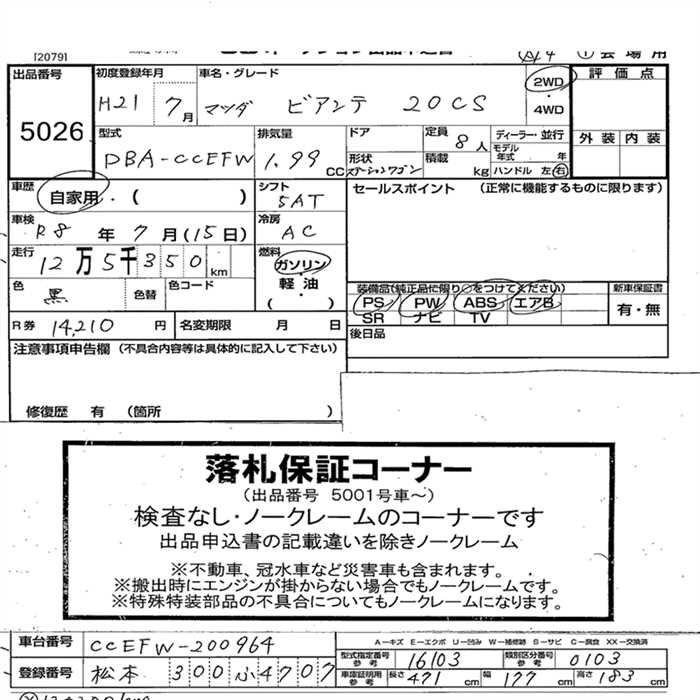 [2079]
出品番号 初度登録年月 車名・グレード 2WD 評価点
5026 H21 7月 マツダ ビアンテ 20CS ・ 4WD
外装 内装
型式 排気量 ドア 定員 8人 ディーラー・並行
DBA-CCEFW 1.99 CC 形状 ステーションワゴン 積載 kg モデル年式 年 ハンドル 左右
車歴 自家用・( ) シフト 5AT セールスポイント (正常に機能するものに限ります)
車検 R8年 7月(15日) 冷房 AC
走行 12万5千350km 燃料 ガソリン・軽油・( )
色 黒 色替 色コード
装備品(純正品に限り○をつけてください) 新車保証書
PS PW ABS エアB 有・無
SR ナビ TV
R券 14,210円 名変期限 月 日 後日品
注意事項申告欄 (不具合内容等は具体的に記入して下さい)
修復歴 有 (箇所 )
落札保証コーナー
(出品番号 5001号車~)
検査なし・ノークレームのコーナーです
出品申込書の記載違いを除きノークレーム
※不動車、冠水車など災害車も含まれます。
※搬出時にエンジンが掛からない場合でもノークレームです。
※特殊特装部品の不具合についてもノークレームになります。
車台番号 CCEFW-200964 A-キズ E-エクボ U-凹み W-補修跡 S-サビ C-腐食 XX-交換済
型式指定番号 参考 16103 類別区分番号 参考 0103
登録番号 松本 300 ふ 4707 車庫証明用 参考 長さ 471cm 幅 177cm 高さ 183cm